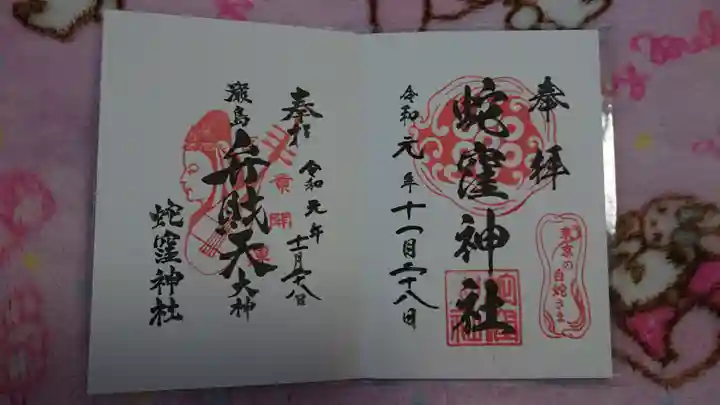 奉拝
蛇窪神社
令和元年十一月二十八日
東京の
白蛇さま
奉拝
令和元年
十一月二十八日
厳島
弁財天
大神
蛇窪神社